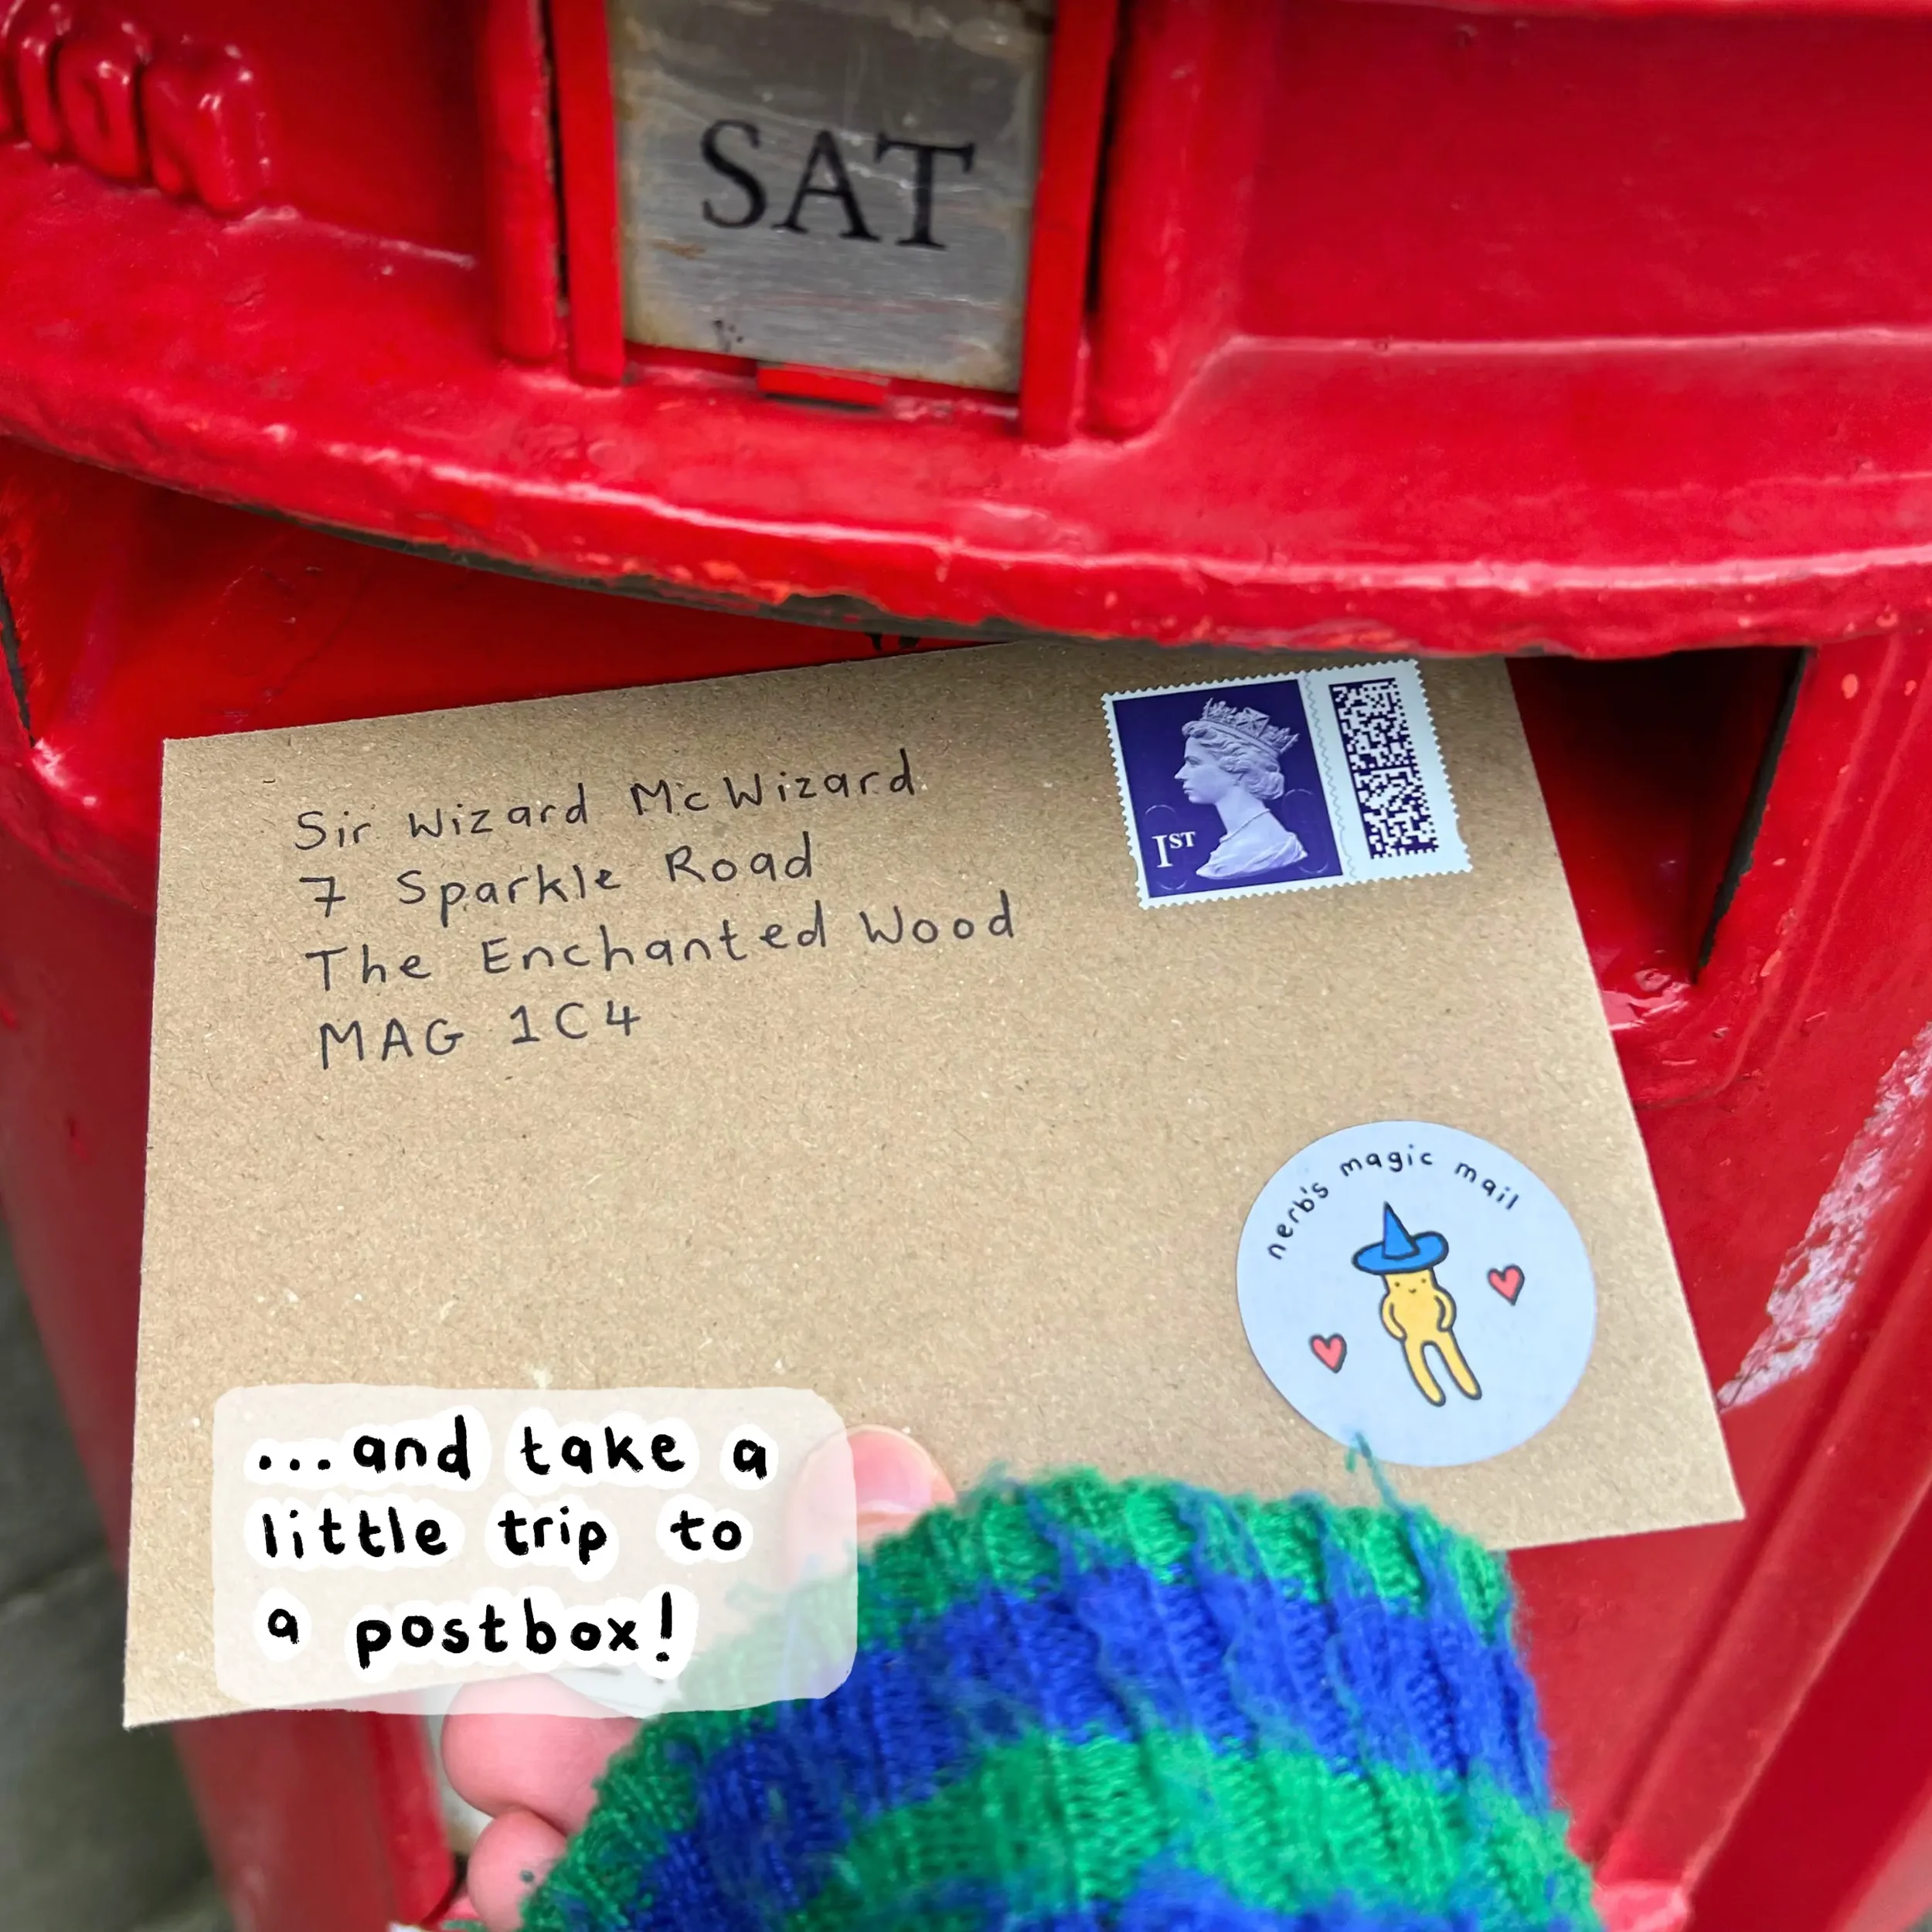 SAT
Sir Wizard McWizard
7 Sparkle Road
The Enchanted Wood
MAG 1C4
1ST
nerb's magic mail
...and take a
little trip to
a postbox!